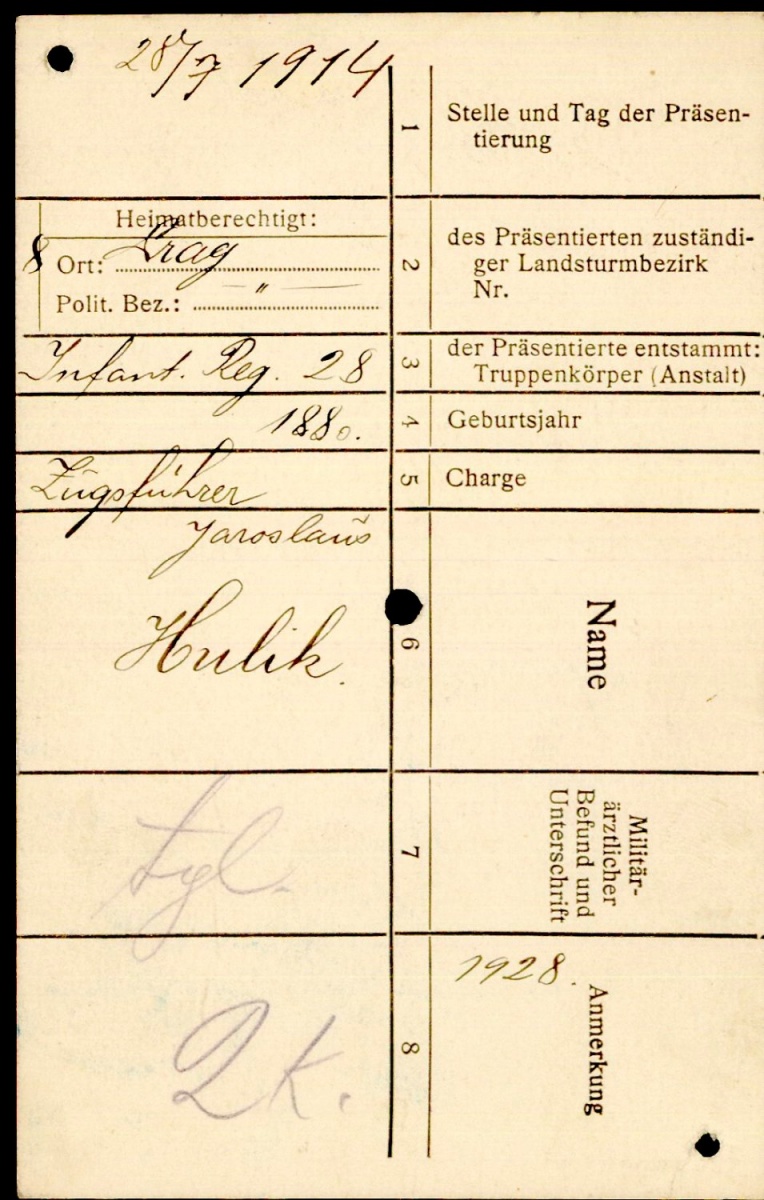 28/7 1914
1
Stelle und Tag der Präsen-
tierung
Heimatberechtigt:
8 Ort: Prag
Polit. Bez.: — " —
2
des Präsentierten zuständi-
ger Landsturmbezirk
Nr.
Infant. Reg. 28
3
der Präsentierte entstammt:
Truppenkörper (Anstalt)
1880.
4
Geburtsjahr
Zugsführer
5
Charge
Jaroslaus
Hulik.
6
Name
tgl.
7
Militär-
ärztlicher
Befund und
Unterschrift
2 K.
8
1928.
Anmerkung